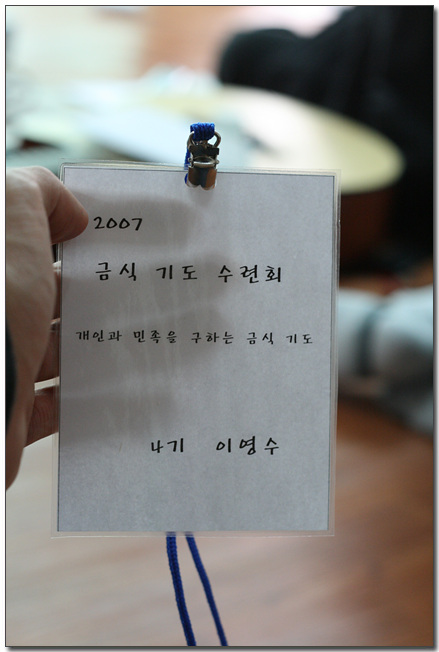 2007
금식 기도 수련회
개인과 민족을 구하는 금식 기도
나기 이영수